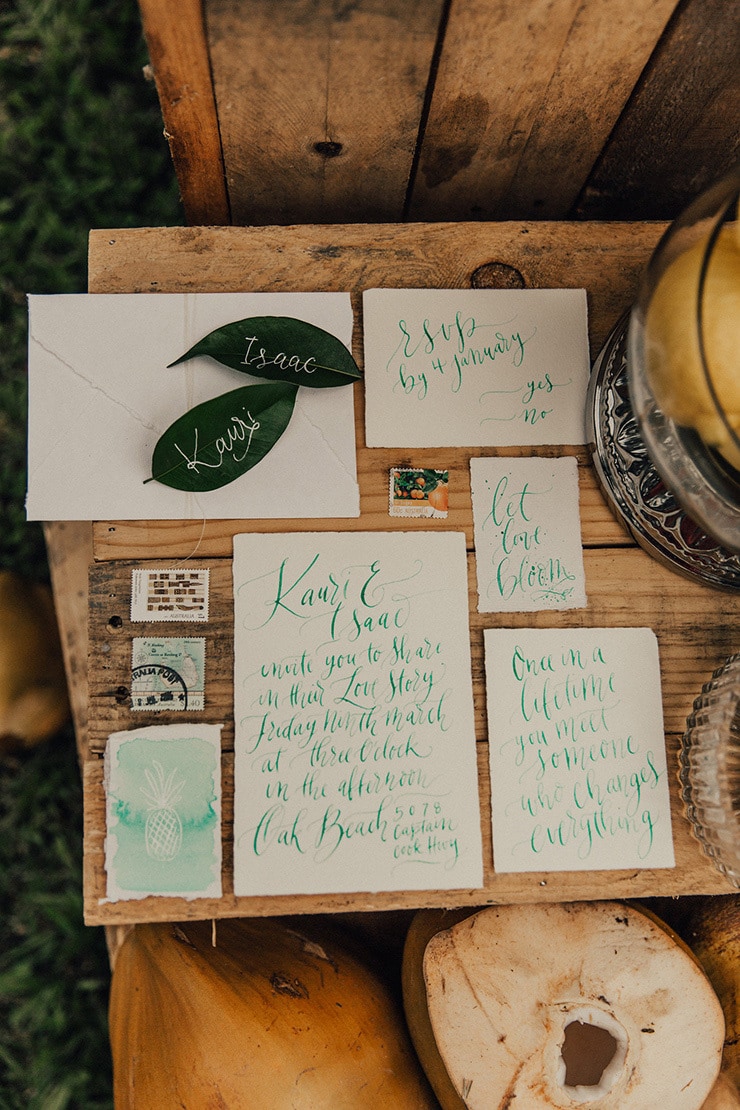 Isaac
Kauri
RSVP
by 4 January
yes
no
let
love
bloom
AUSTRALIA
Kauri &
Isaac
invite you to share
in their Love Story
Friday Ninth March
at three O'clock
in the afternoon
Oak Beach
5078
Captain
Cook Hwy
Once in a
lifetime
you meet
someone
who changes
everything